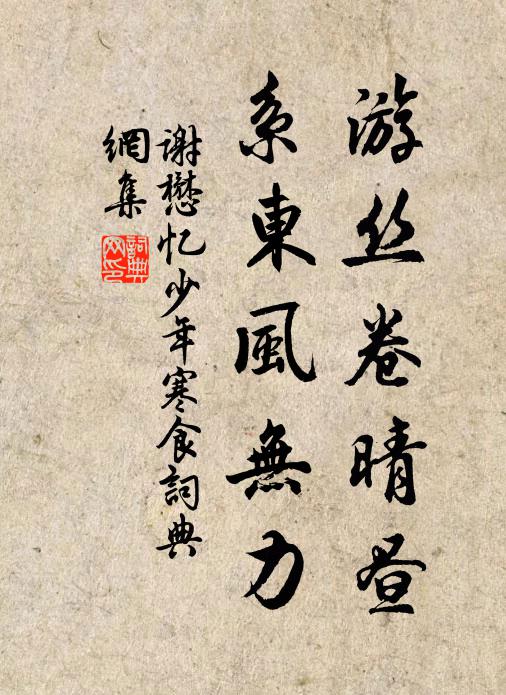 游丝卷晴昼
系東風無力
谢懋忆少年寒食詞典
網集
詞典
网印